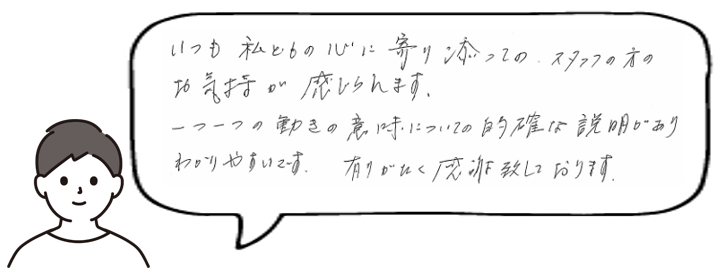 いつも 私どもの心に寄り添っての、スタッフの方の
お気持が 感じられます。
一つ一つの動きの意味についての的確な説明があり
わかりやすいです。 有りがたく感謝致しております。